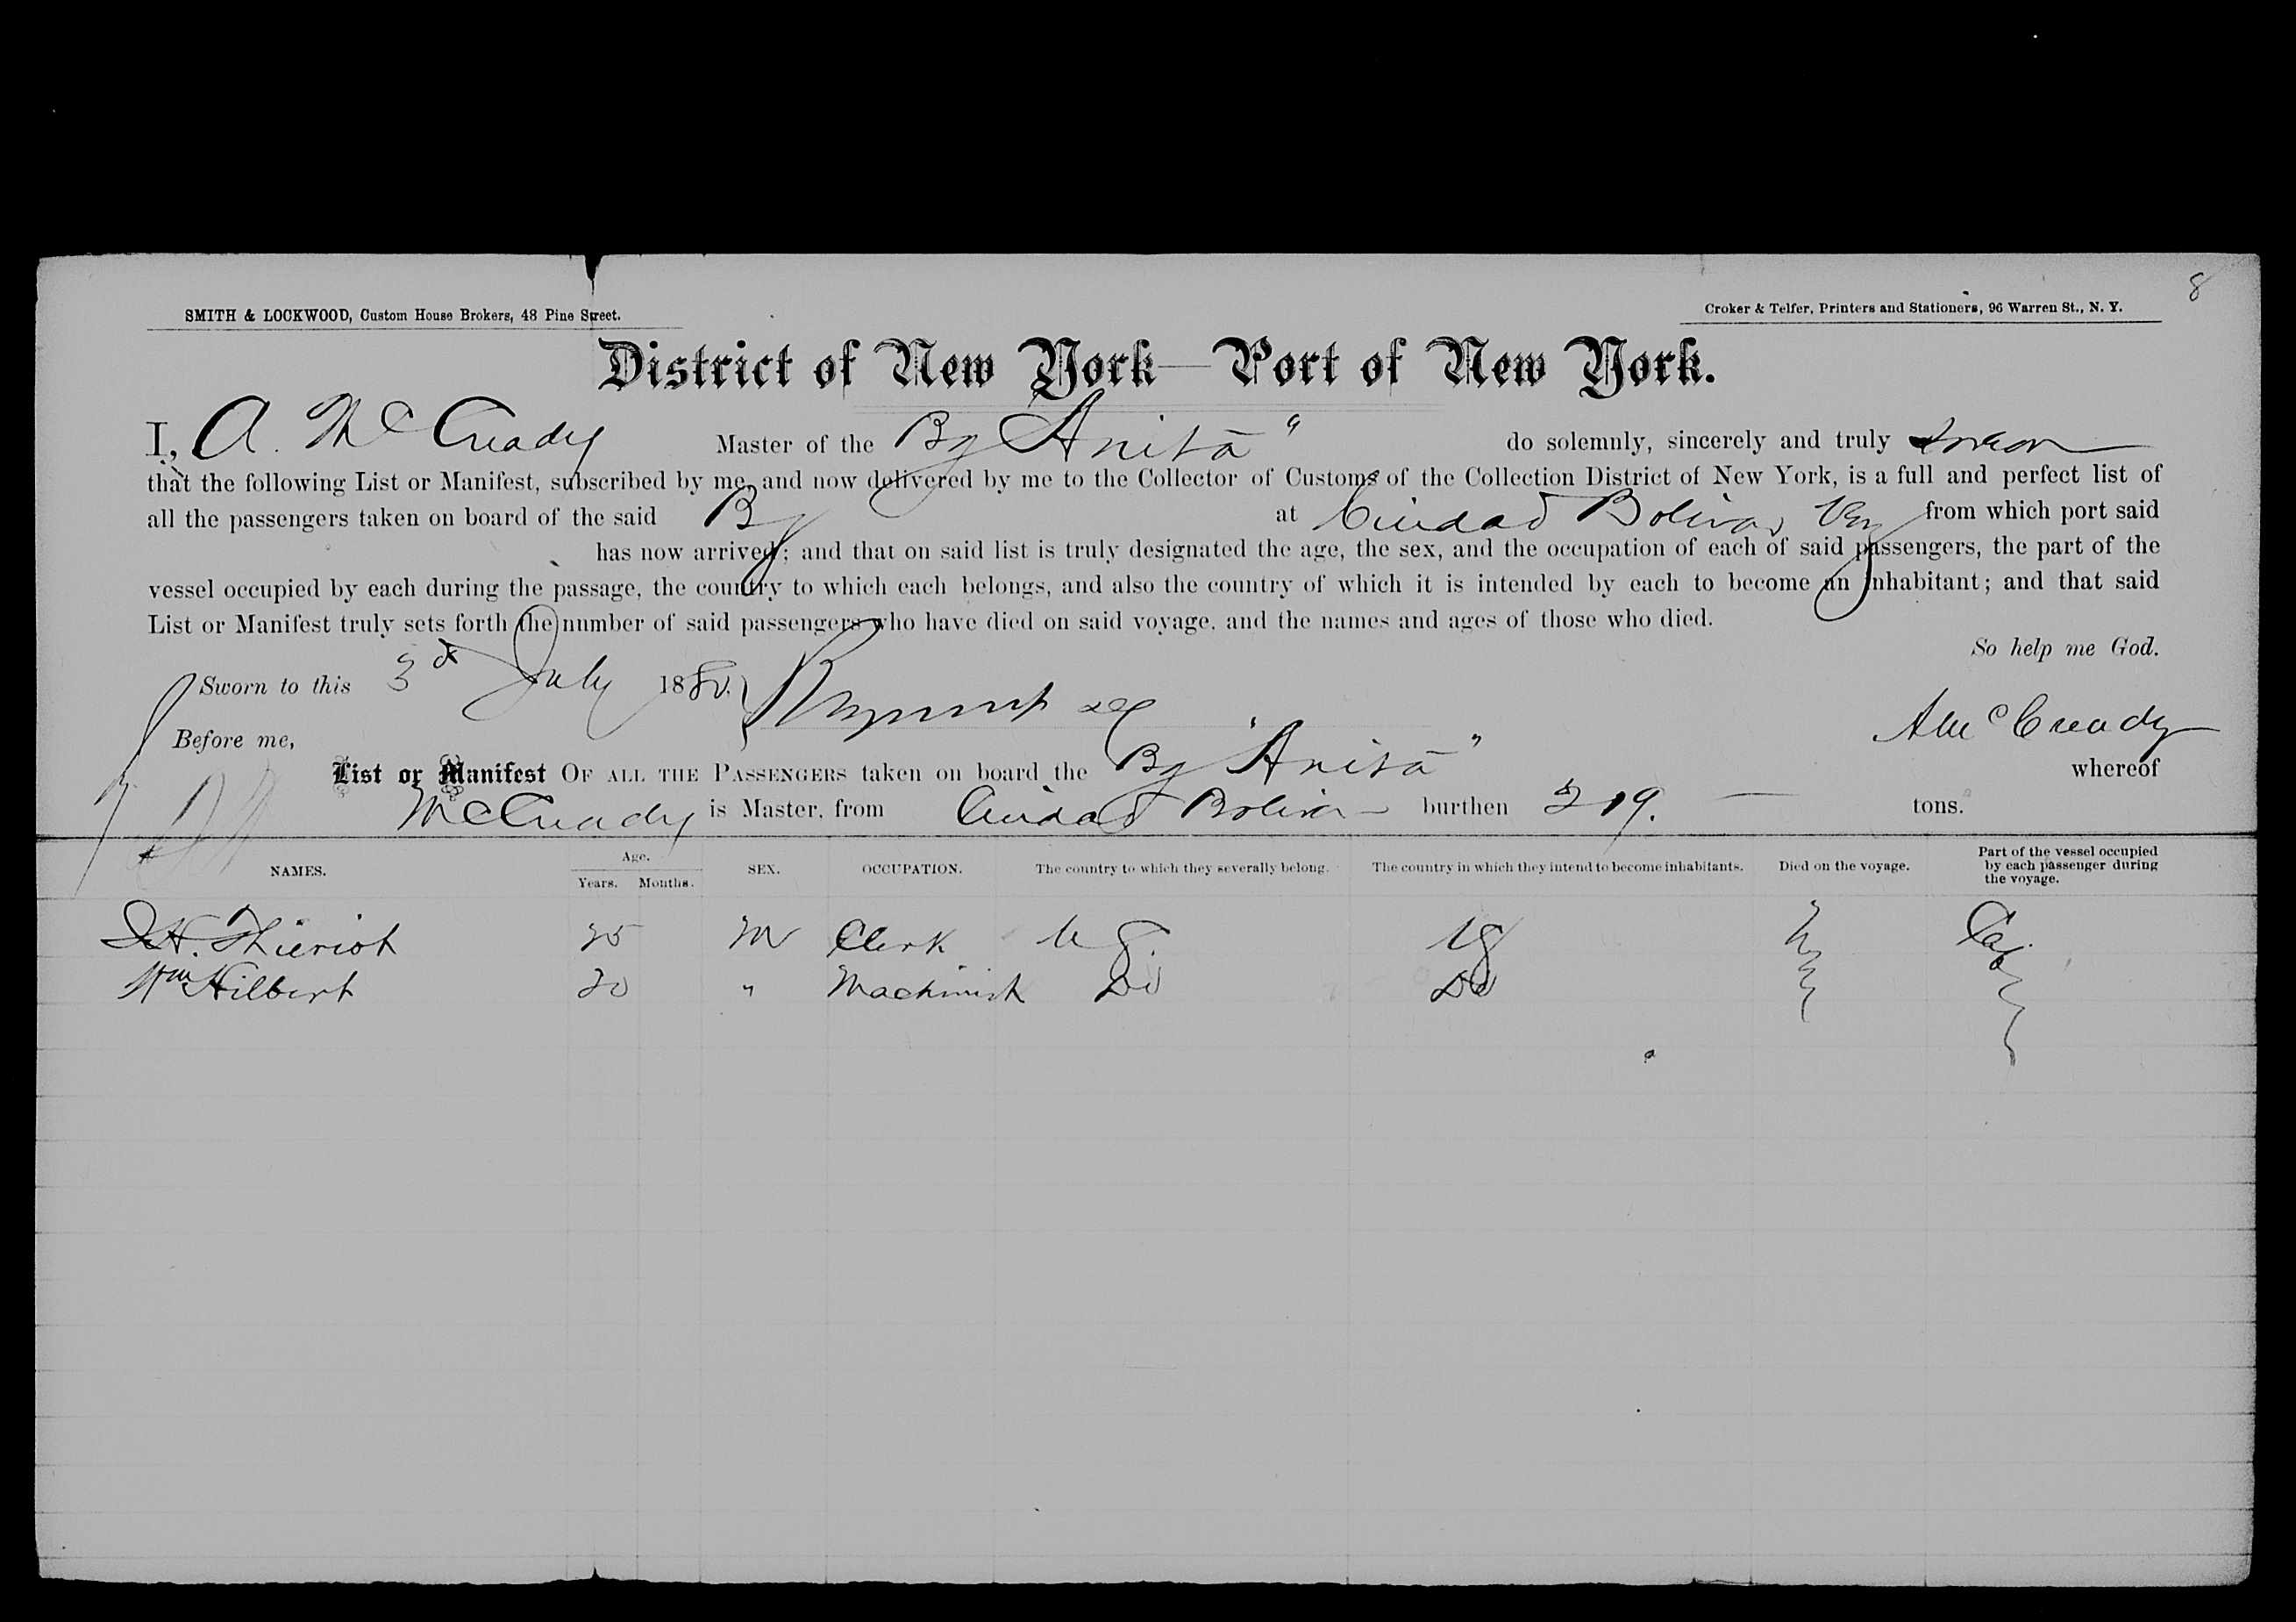 8
SMITH & LOCKWOOD, Custom House Brokers, 48 Pine Street.
Croker & Telfer, Printers and Stationers, 96 Warren St., N. Y.
District of New York—Port of New York.
I, A. McCready Master of the Bg "Anita" do solemnly, sincerely and truly swear
that the following List or Manifest, subscribed by me, and now delivered by me to the Collector of Customs of the Collection District of New York, is a full and perfect list of
all the passengers taken on board of the said Bg at Ciudad Bolivar from which port said
has now arrived; and that on said list is truly designated the age, the sex, and the occupation of each of said passengers, the part of the
vessel occupied by each during the passage, the country to which each belongs, and also the country of which it is intended by each to become an inhabitant; and that said
List or Manifest truly sets forth the number of said passengers who have died on said voyage, and the names and ages of those who died.
So help me God.
Sworn to this 3d July 1880.
A McCready
Before me,
List or Manifest OF ALL THE PASSENGERS taken on board the Bg "Anita" whereof
McCready is Master, from Ciudad Bolivar burthen 219. tons.
NAMES. Age. Years. Months. SEX. OCCUPATION. The country to which they severally belong. The country in which they intend to become inhabitants. Died on the voyage. Part of the vessel occupied by each passenger during the voyage.
H. Thieriot 25 M Clerk
Wm Hilbert 20 " Machinist Do Do